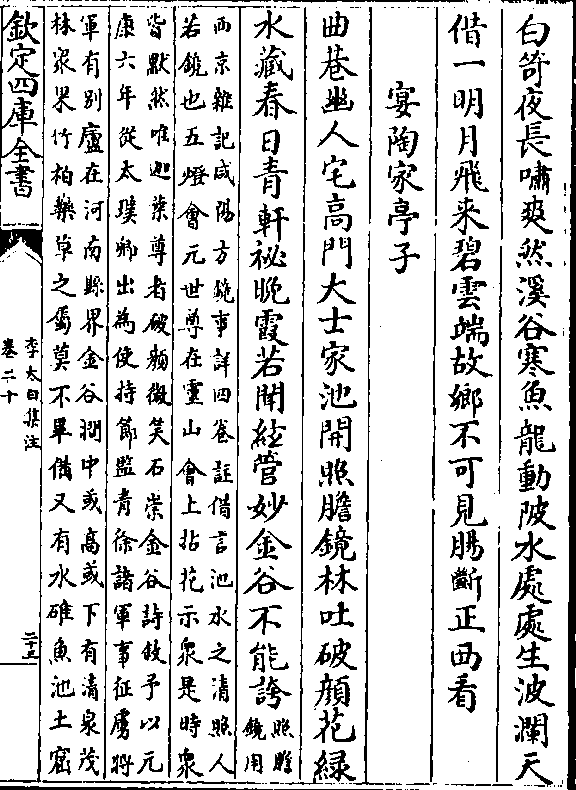 白笴夜長嘯爽然溪谷寒魚龍動陂水處處生波瀾天
借一明月飛来碧雲端故鄉不可見腸斷正西看
宴陶家亭子
曲巷幽人宅高門大士家池開照膽鏡林吐破顔花緑
水藏春日青軒祕晩霞若聞絃管妙金谷不能誇
照膽
鏡用
西京雜記咸陽方鏡事詳四卷註借言池水之清照人
若鏡也五燈會元世尊在靈山會上拈花示衆是時衆
皆默然唯迦葉尊者破顔微笑石崇金谷詩敘予以元
康六年從太僕卿出為使持節監青徐諸軍事征虜將
軍有别廬在河南縣界金谷澗中或高或下有清泉茂
林衆果竹柏藥草之屬莫不畢備又有水碓魚池土窟
欽定四庫全書
李太白集注
卷二十
二十三